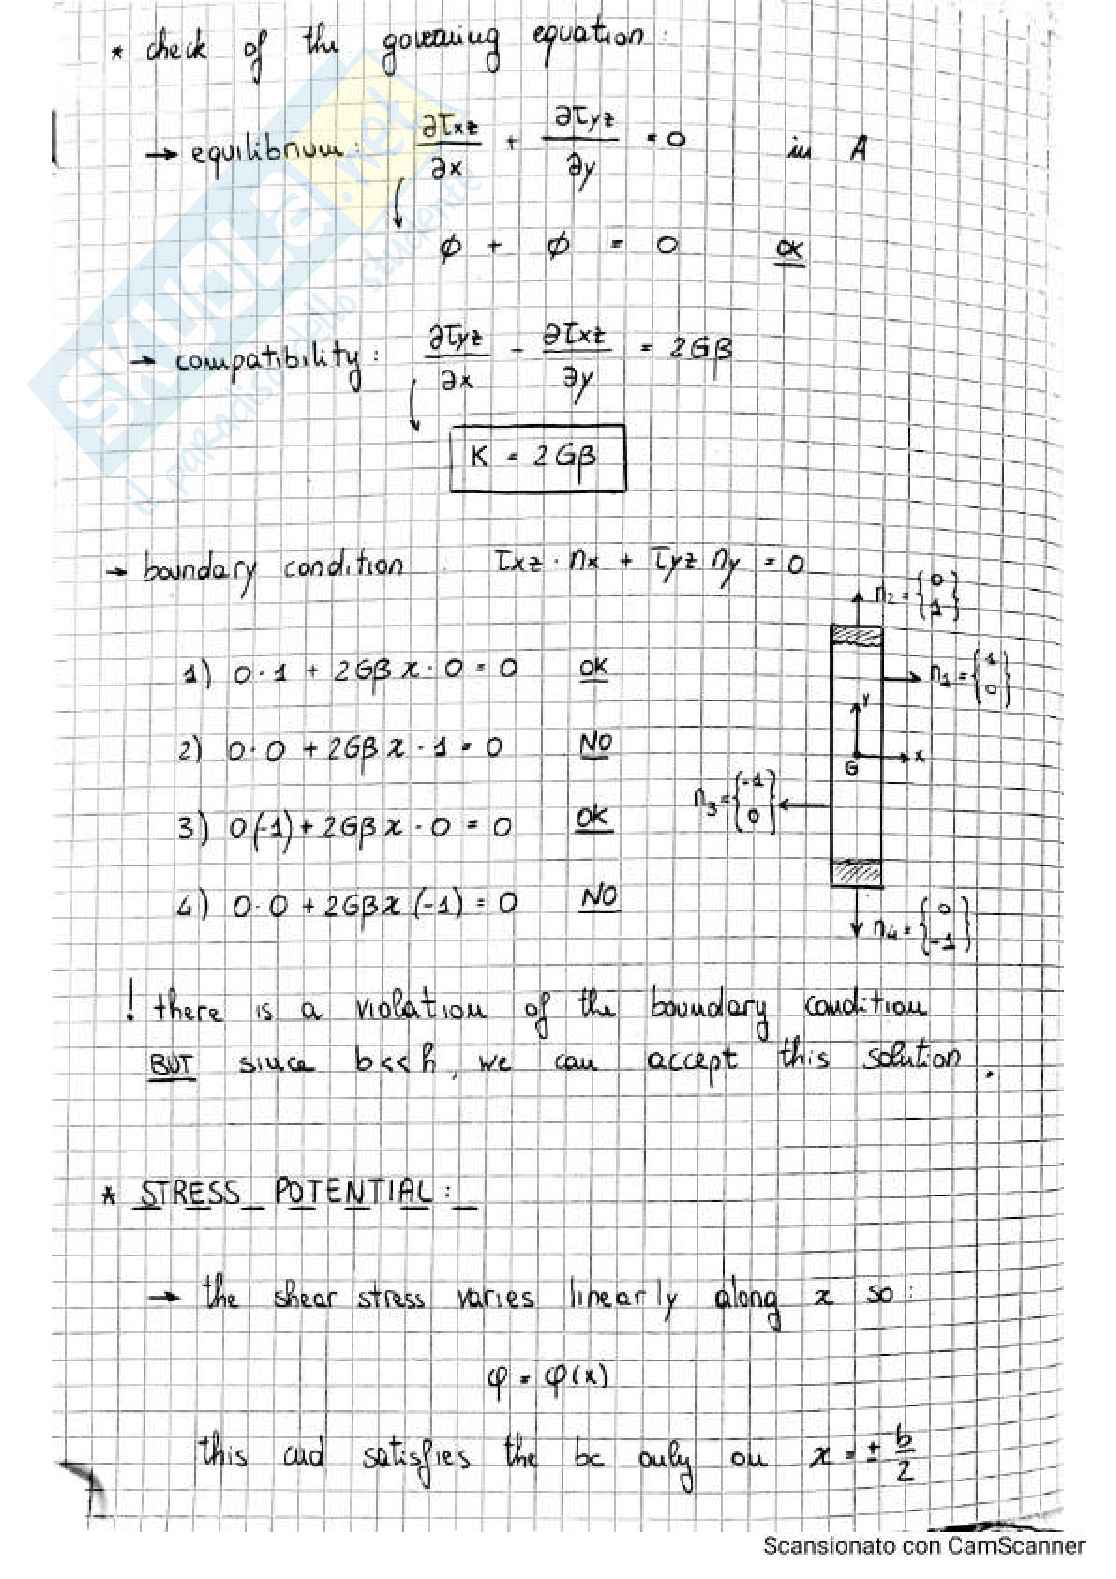 * check of the governing equation:
→ equilibrium: ∂τxz/∂x + ∂τyz/∂y = 0 in A
∅ + ∅ = 0 OK
→ compatibility: ∂τyz/∂x - ∂τxz/∂y = 2Gβ
K = 2Gβ
→ boundary condition τxz · nx + τyz ny = 0
n2 = {0 1}
1) 0·1 + 2Gβx·0 = 0 OK
n1 = {1 0}
y
2) 0·0 + 2Gβx·1 = 0 NO
G x
n3 = {-1 0}
3) 0(-1) + 2Gβx·0 = 0 OK
4) 0·0 + 2Gβx(-1) = 0 NO
n4 = {0 -1}
! there is a violation of the boundary condition
BUT since b<<h, we can accept this solution.
* STRESS POTENTIAL:
→ the shear stress varies linearly along x so:
φ = φ(x)
this and satisfies the bc only on x = ± b/2
SKUOLA.net
il paradiso dello studente
Scansionato con CamScanner